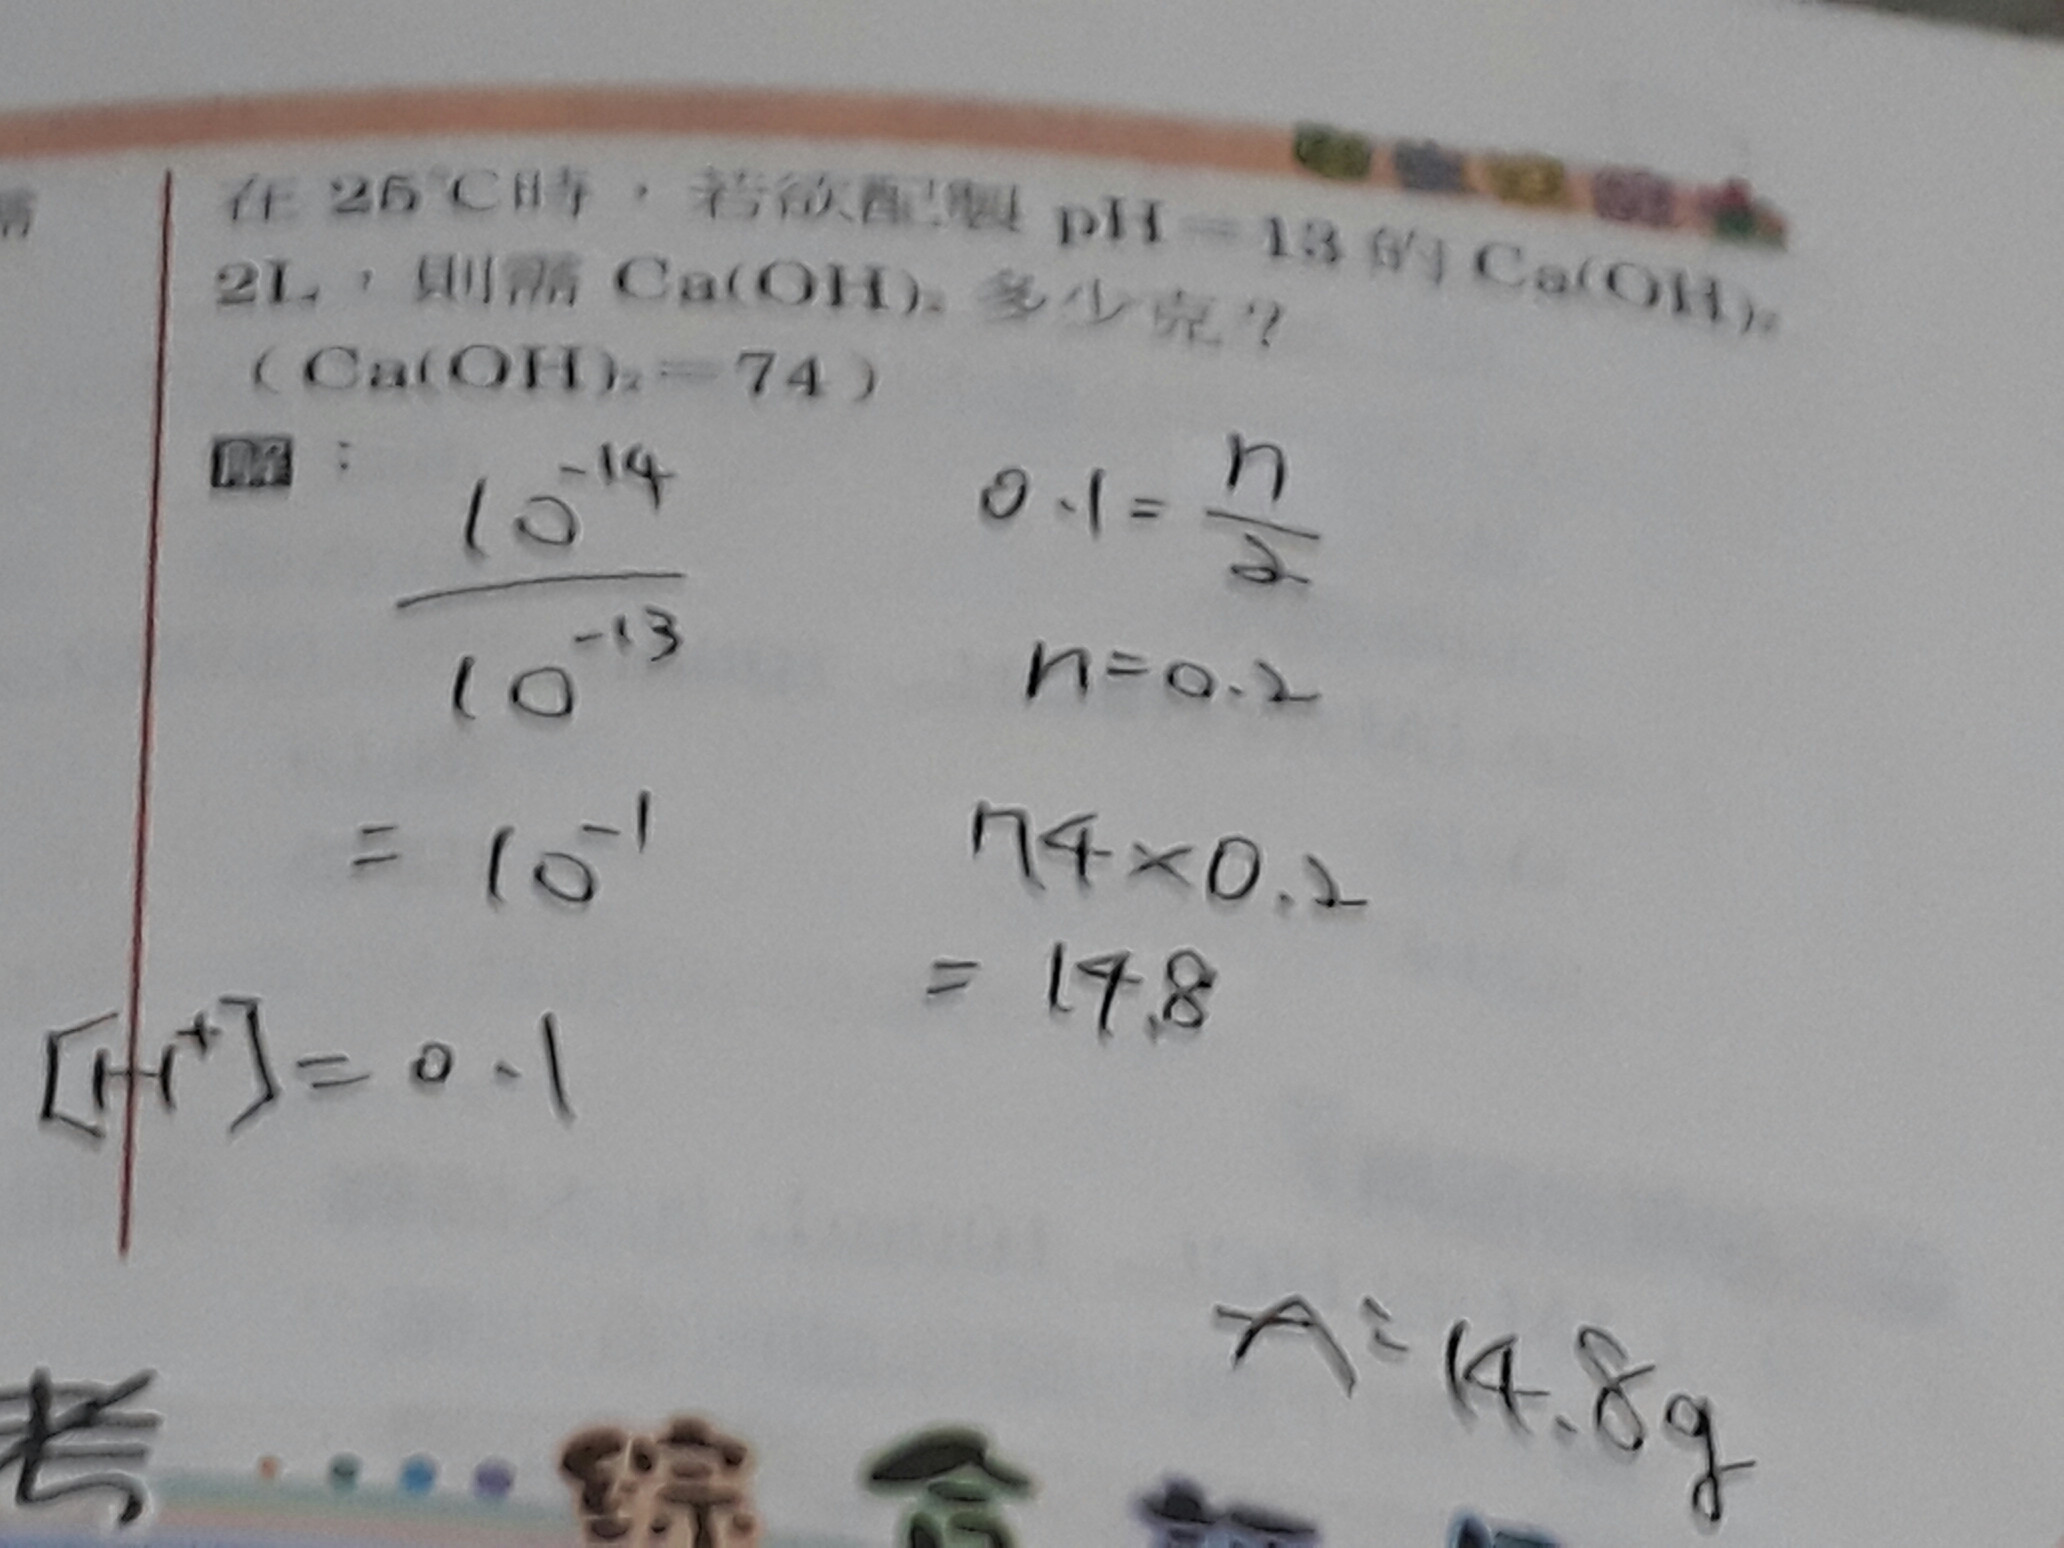 在 25℃時，若欲配製 pH＝13 的 Ca(OH)₂
2L，則需 Ca(OH)₂ 多少克？
（Ca(OH)₂＝74）
解：
10⁻¹⁴
10⁻¹³
= 10⁻¹
[H⁺]=0.1
0.1= n/2
n=0.2
74×0.2
= 14.8
A: 14.8g
考